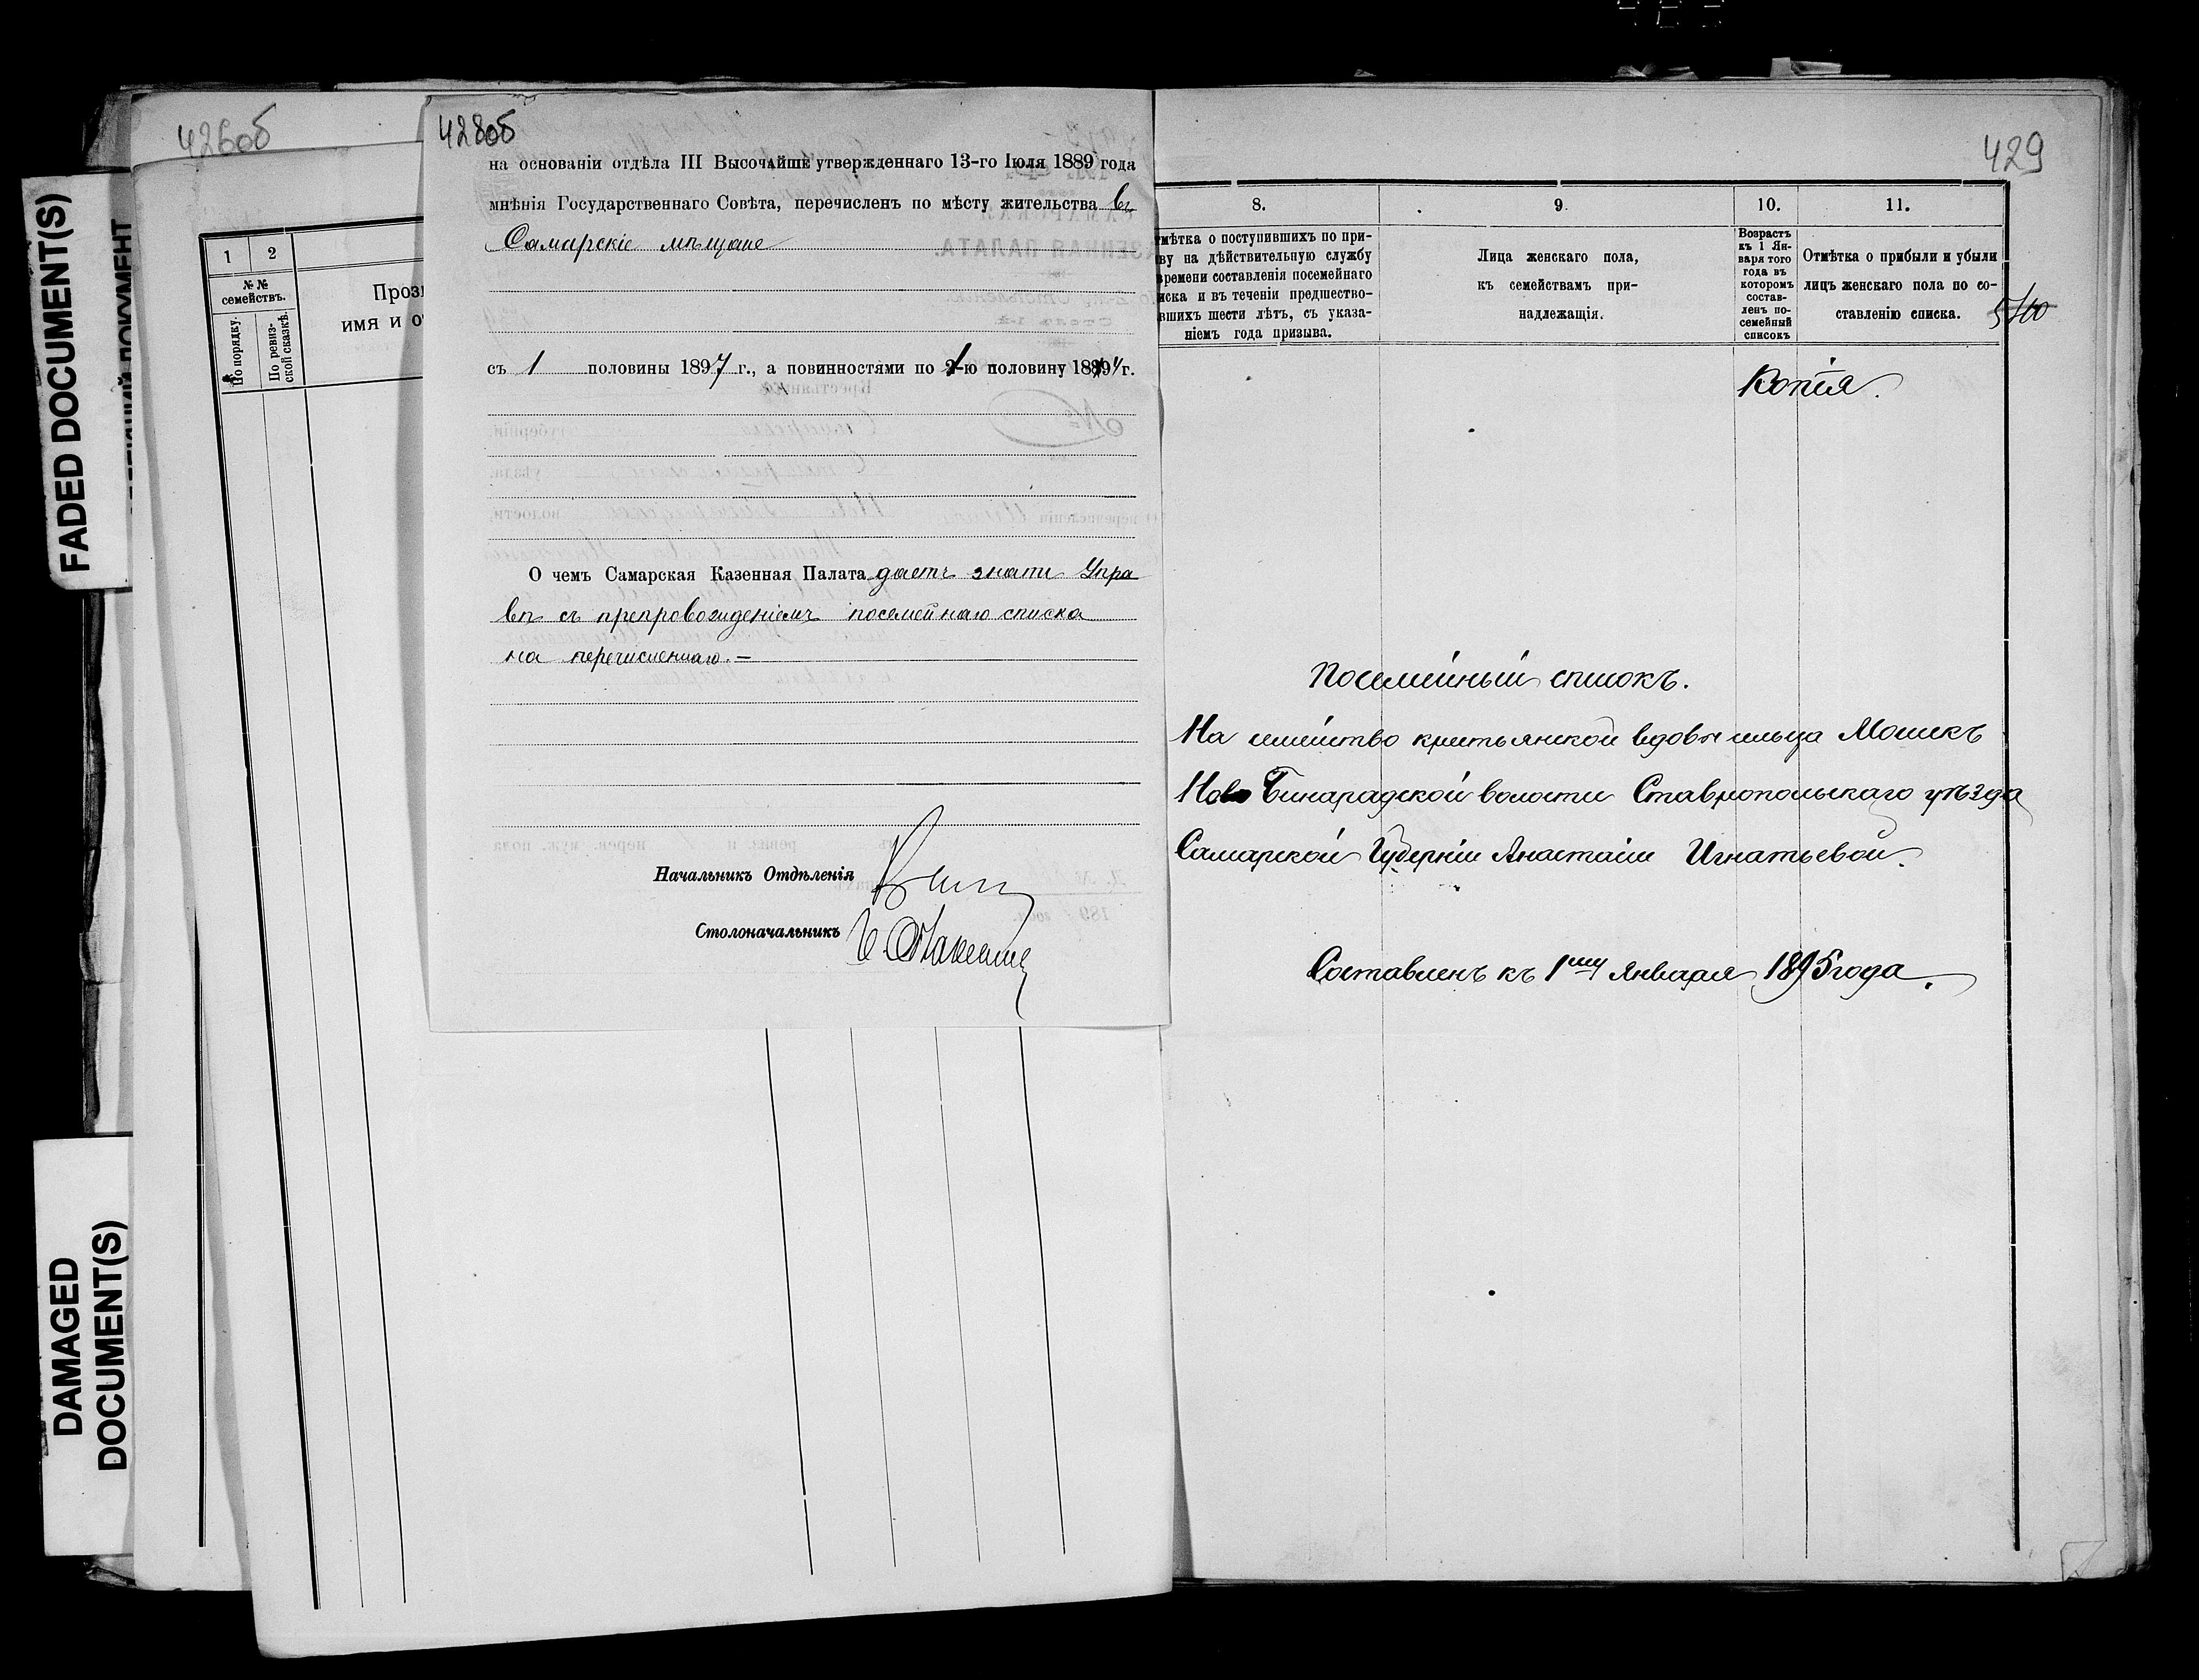 426об
428об
на основаніи отдѣла III Высочайше утвержденнаго 13-го Іюля 1889 года
мнѣнія Государственнаго Совѣта, перечисленъ по мѣсту жительства въ
Самарскіе мѣщане
съ 1 половины 1897 г., а повинностями по 1-ю половину г.
О чемъ Самарская Казенная Палата даетъ знать Упра
вѣ съ препровожденіемъ посемейнаго списка
на перечисленнаго. —
Начальникъ Отдѣленія
Столоначальникъ
1 2
№№ семействъ.
По порядку.
По ревиз-
ской сказкѣ.
429
8. 9. 10. 11.
мѣтка о поступившихъ по при-
ву на дѣйствительную службу
времени составленія посемейнаго
иска и въ теченіи предшество-
вшихъ шести лѣтъ, съ указа-
ніемъ года призыва.
Лица женскаго пола,
къ семействамъ при-
надлежащія.
Возрастъ
къ 1 Ян-
варя того
года въ
которомъ
состав-
ленъ по-
семейный
списокъ
Отмѣтка о прибыли и убыли
лицъ женскаго пола по со-
ставленію списка.
Копія.
Посемейный списокъ.
На семейство крестьянской вдовы сельца Мошекъ
Ново Бинарадской волости Ставропольскаго уѣзда
Самарской Губерніи Анастасіи Игнатьевой.
Составленъ къ 1му Января 1895 года.
FADED DOCUMENT(S)
DAMAGED
DOCUMENT(S)